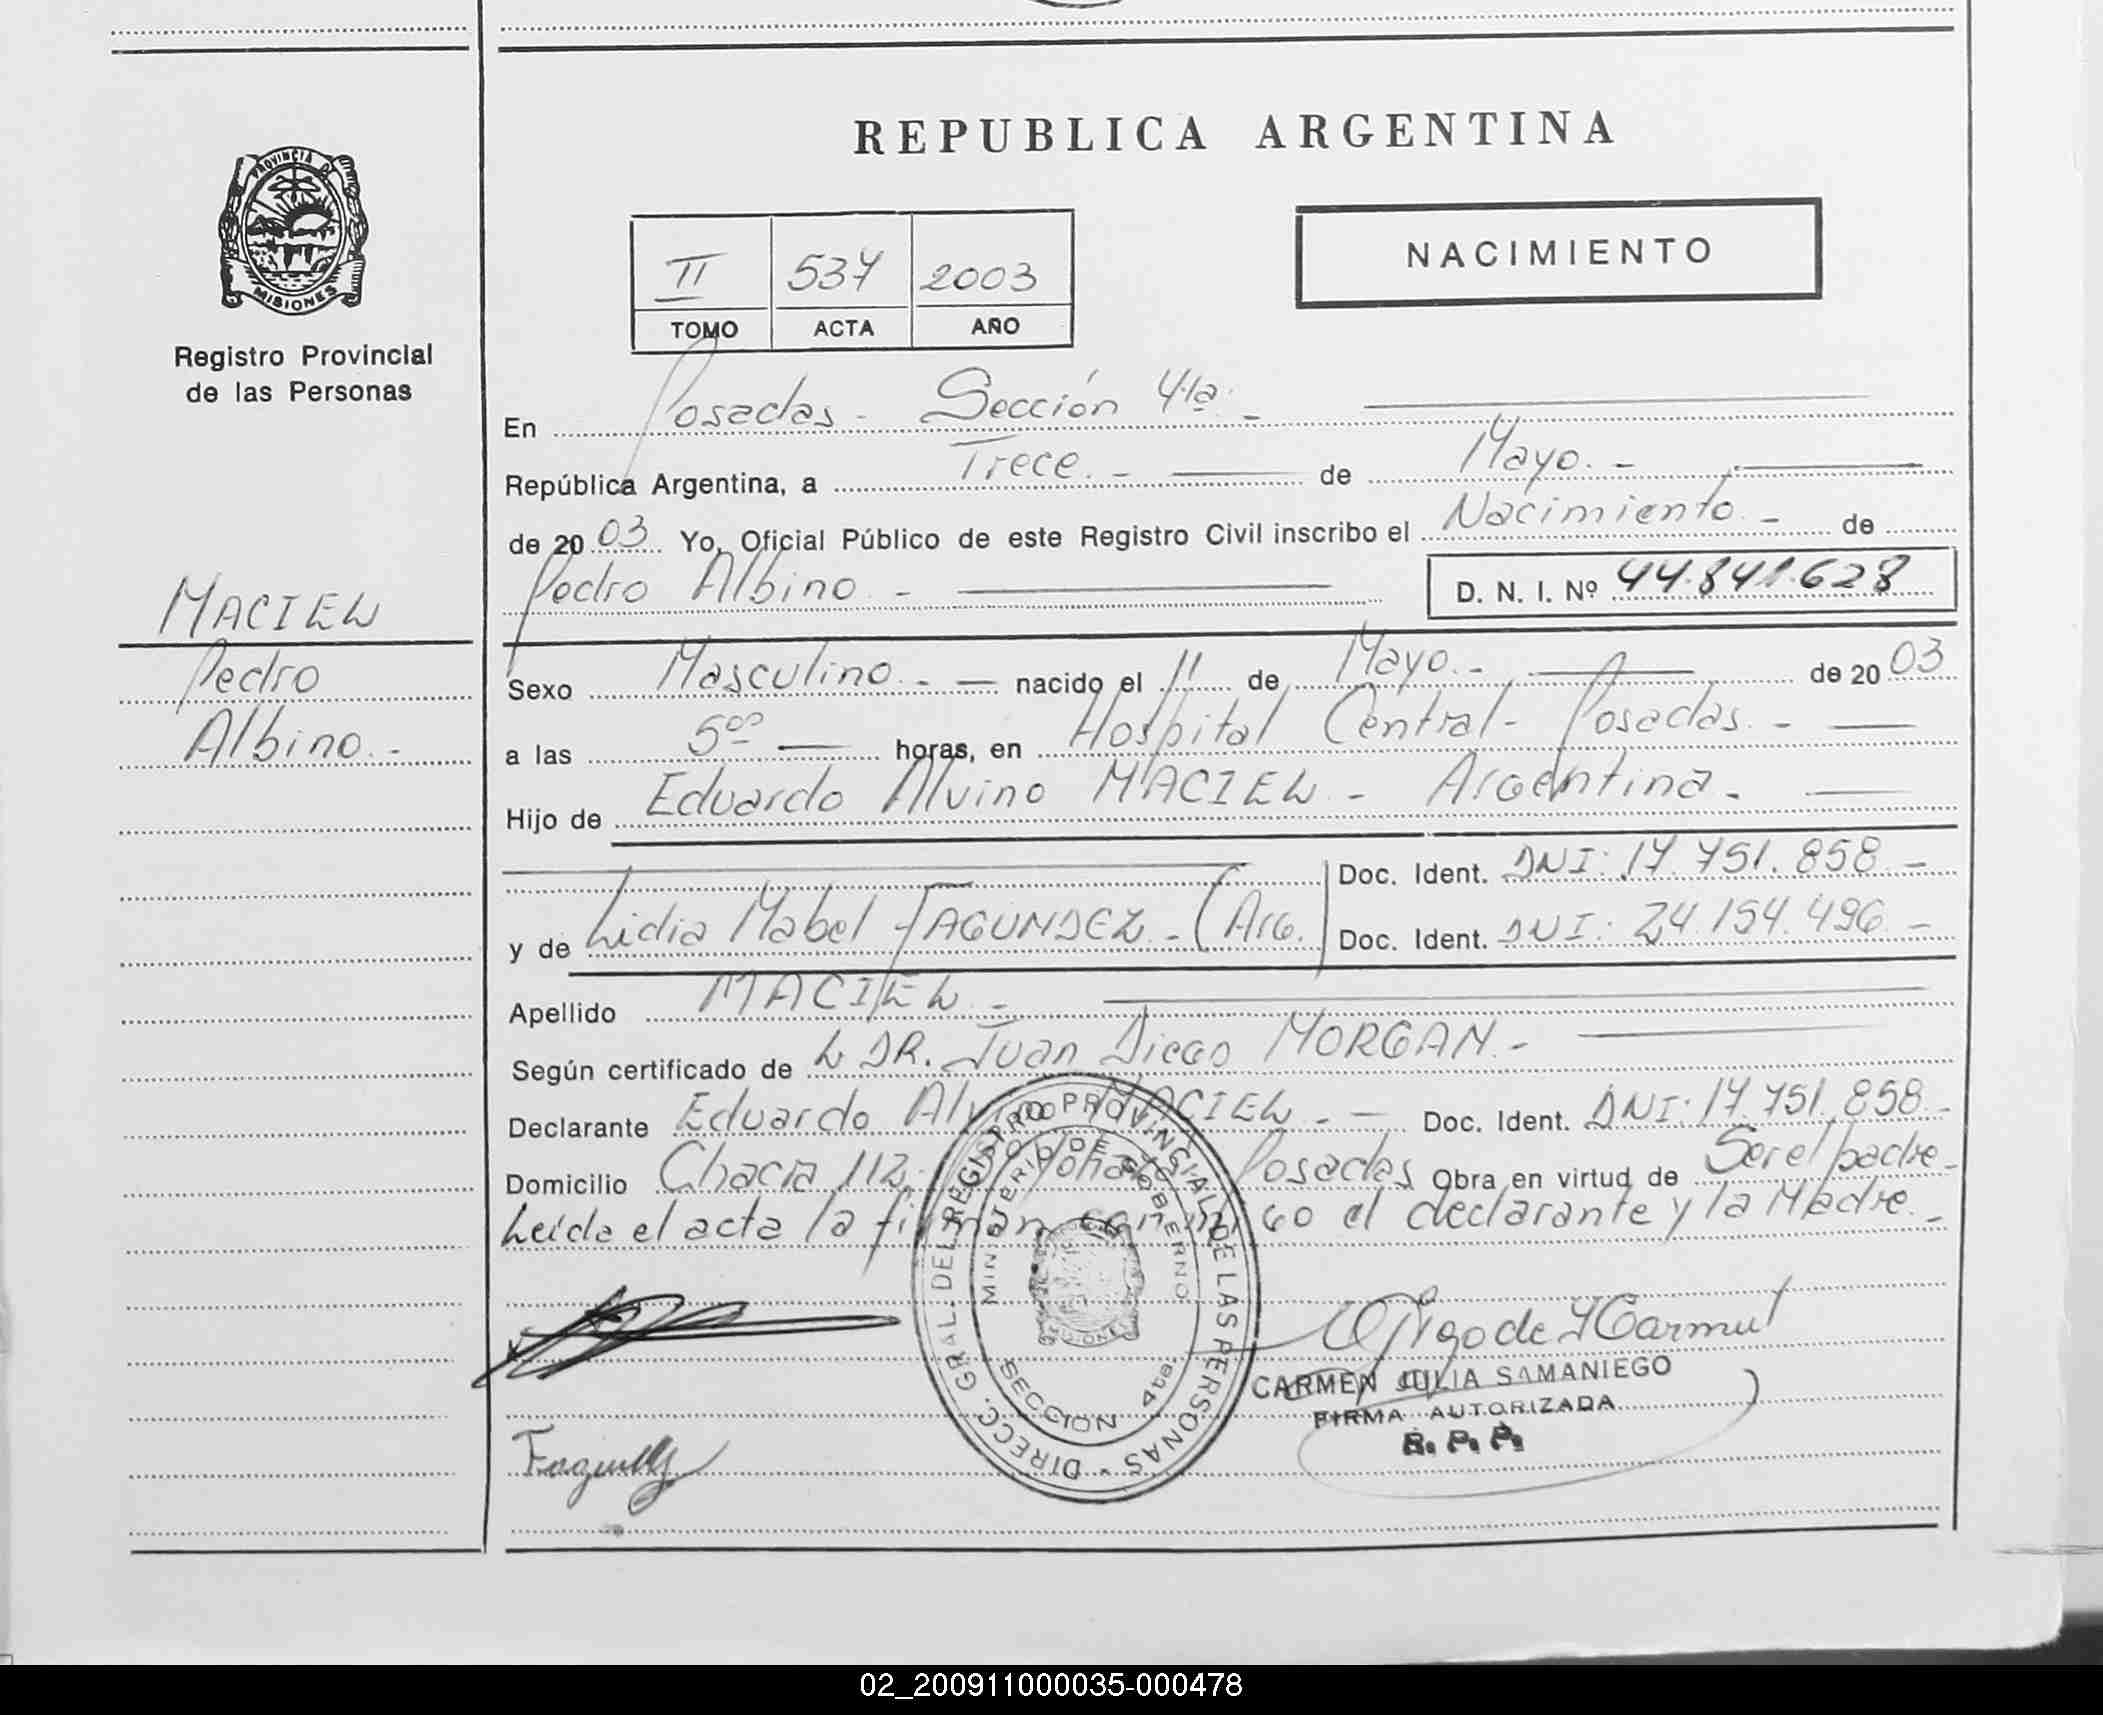 REPUBLICA ARGENTINA
PROVINCIA DE
MISIONES
Registro Provincial
de las Personas
NACIMIENTO
II 537 2003
TOMO ACTA AÑO
En Posadas - Sección 4ta. -
República Argentina, a Trece. - de Mayo. -
de 2003 Yo, Oficial Público de este Registro Civil inscribo el Nacimiento - de
Pedro Albino. - D. N. I. Nº 44.841.628
MACIEL
Pedro
Albino. -
Sexo Masculino. - nacido el 11 de Mayo. - de 2003
a las 5:00 horas, en Hospital Central - Posadas. -
Hijo de Eduardo Alvino MACIEL - Argentina. -
Doc. Ident. DNI: 17.751.858. -
y de Lidia Mabel FAGUNDEZ - (Arg. Doc. Ident. DNI: 24.154.496. -
Apellido MACIEL. -
Según certificado de L DR. Juan Diego MORGAN. -
Declarante Eduardo Alvino MACIEL. - Doc. Ident. DNI: 17.751.858. -
Domicilio Chacra 112. Posadas Obra en virtud de Ser el padre -
Leída el acta la firman conmigo el declarante y la Madre. -
DIRECC. GRAL. DEL REGISTRO PROVINCIAL DE LAS PERSONAS -
MINISTERIO DE GOBIERNO
MISIONES
SECCION 4ta.
CARMEN JULIA SAMANIEGO
FIRMA AUTORIZADA
R. P. P.
02_200911000035-000478